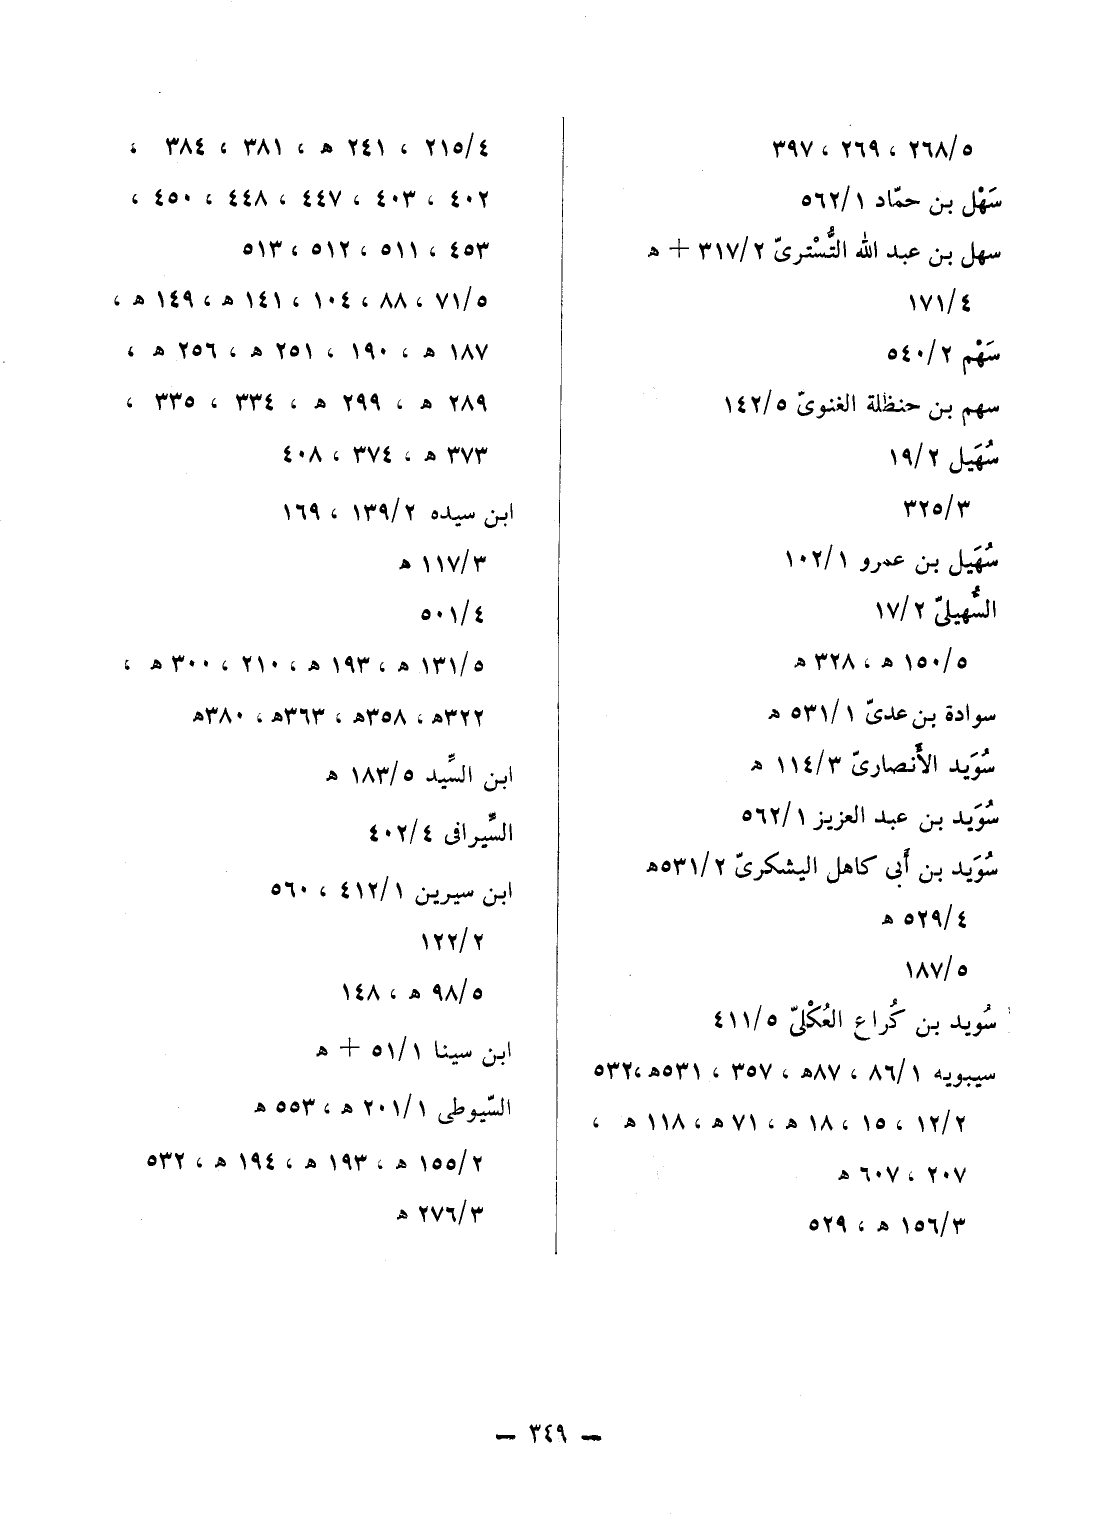 ٢٦٨/٥ ، ٢٦٩ ، ٣٩٧
سَهْل بن حمّاد ٥٦٢/١
سهل بن عبد الله التُّسْترىّ ٣١٧/٢ + ه
١٧١/٤
سَهْم ٥٤٠/٢
سهم بن حنظلة الغنوىّ ١٤٢/٥
سُهَيل ١٩/٢
٣٢٥/٣
سُهَيل بن عمرو ١٠٢/١
السُّهيلىّ ١٧/٢
١٥٠/٥ ه ، ٣٢٨ ه
سوادة بن عدىّ ٥٣١/١ ه
سُوَيد الأَنصارىّ ١١٤/٣ ه
سُوَيد بن عبد العزيز ٥٦٢/١
سُوَيد بن أَبى كاهل اليشكرىّ ٥٣١/٢ه
٥٢٩/٤ ه
١٨٧/٥
سُويد بن كُراع العُكْلىّ ٤١١/٥
سيبويه ٨٦/١ ، ٨٧ه ، ٣٥٧ ، ٥٣١ه،٥٣٢
١٢/٢ ، ١٥ ، ١٨ ه ، ٧١ ه ، ١١٨ ه ،
٢٠٧ ، ٦٠٧ ه
١٥٦/٣ ه ، ٥٢٩
٢١٥/٤ ، ٢٤١ ه ، ٣٨١ ، ٣٨٤ ،
٤٠٢ ، ٤٠٣ ، ٤٤٧ ، ٤٤٨ ، ٤٥٠ ،
٤٥٣ ، ٥١١ ، ٥١٢ ، ٥١٣
٧١/٥ ، ٨٨ ، ١٠٤ ، ١٤١ ه ، ١٤٩ ه ،
١٨٧ ه ، ١٩٠ ، ٢٥١ ه ، ٢٥٦ ه ،
٢٨٩ ه ، ٢٩٩ ه ، ٣٣٤ ، ٣٣٥ ،
٣٧٣ ه ، ٣٧٤ ، ٤٠٨
ابن سيده ١٣٩/٢ ، ١٦٩
١١٧/٣ ه
٥٠١/٤
١٣١/٥ ه ، ١٩٣ ه ، ٢١٠ ، ٣٠٠ ه ،
٣٢٢ه ، ٣٥٨ه ، ٣٦٣ه ، ٣٨٠ه
ابن السِّيد ١٨٣/٥ ه
السِّيرافى ٤٠٢/٤
ابن سيرين ٤١٢/١ ، ٥٦٠
١٢٢/٢
٩٨/٥ ه ، ١٤٨
ابن سينا ٥١/١ + ه
السّيوطى ٢٠١/١ ه ، ٥٥٣ ه
١٥٥/٢ ه ، ١٩٣ ه ، ١٩٤ ه ، ٥٣٢
٢٧٦/٣ ه
— ٣٤٩ —